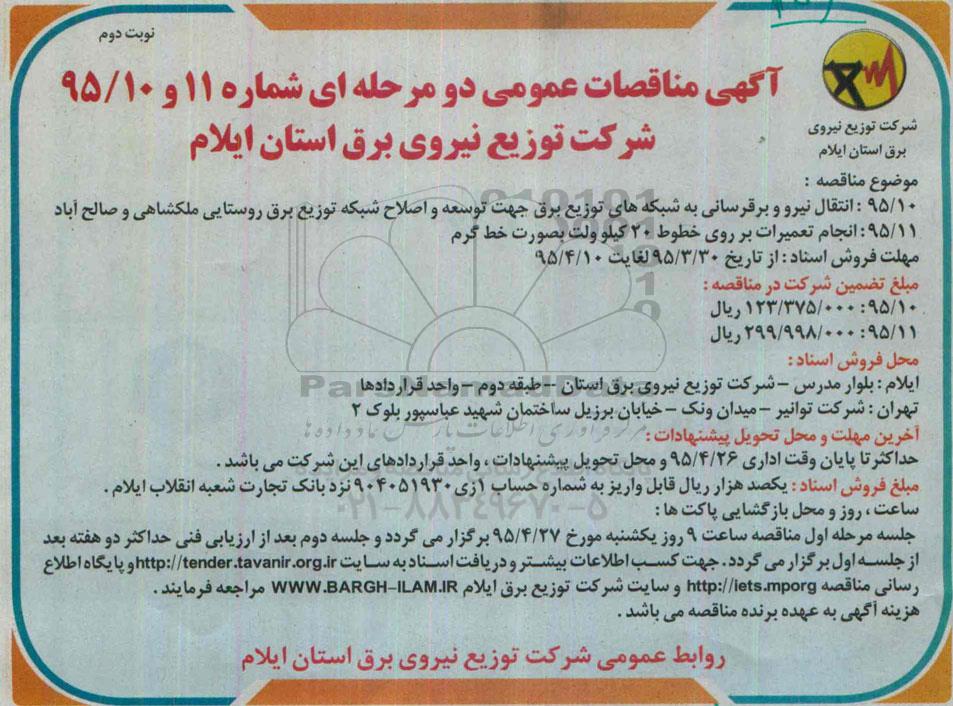 نوبت دوم
آگهی مناقصات عمومی دو مرحله ای شماره ۱۱ و ۹۵/۱۰
شرکت توزیع نیروی برق استان ایلام
شرکت توزیع نیروی
برق استان ایلام
موضوع مناقصه :
۹۵/۱۰ : انتقال نیرو و برقرسانی به شبکه های توزیع برق جهت توسعه و اصلاح شبکه توزیع برق روستایی ملکشاهی و صالح آباد
۹۵/۱۱ : انجام تعمیرات بر روی خطوط ۲۰ کیلو ولت بصورت خط گرم
مهلت فروش اسناد : از تاریخ ۹۵/۳/۳۰ لغایت ۹۵/۴/۱۰
مبلغ تضمین شرکت در مناقصه :
۹۵/۱۰ : ۱۲۳/۳۷۵/۰۰۰ ریال
۹۵/۱۱ : ۲۹۹/۹۹۸/۰۰۰ ریال
محل فروش اسناد :
ایلام : بلوار مدرس – شرکت توزیع نیروی برق استان -– طبقه دوم – واحد قراردادها
تهران : شرکت توانیر – میدان ونک – خیابان برزیل ساختمان شهید عباسپور بلوک ۲
آخرین مهلت و محل تحویل پیشنهادات :
حداکثر تا پایان وقت اداری ۹۵/۴/۲۶ و محل تحویل پیشنهادات ، واحد قراردادهای این شرکت می باشد .
مبلغ فروش اسناد : یکصد هزار ریال قابل واریز به شماره حساب ۱زی۹۰۴۰۵۱۹۳۰ نزد بانک تجارت شعبه انقلاب ایلام .
ساعت ، روز و محل بازگشایی پاکت ها :
جلسه مرحله اول مناقصه ساعت ۹ روز یکشنبه مورخ ۹۵/۴/۲۷ برگزار می گردد و جلسه دوم بعد از ارزیابی فنی حداکثر دو هفته بعد
از جلسه اول برگزار می گردد . جهت کسب اطلاعات بیشتر و دریافت اسناد به سایت http://tender.tavanir.org.ir و پایگاه اطلاع
رسانی مناقصه http://iets.mporg و سایت شرکت توزیع برق ایلام WWW.BARGH-ILAM.IR مراجعه فرمایند .
هزینه آگهی به عهده برنده مناقصه می باشد .
روابط عمومی شرکت توزیع نیروی برق استان ایلام
ParsNamadData
مرکز فرآوری اطلاعات پارس نماد داده ها
۰۲۱-۸۸۳۴۹۶۷۰-۵